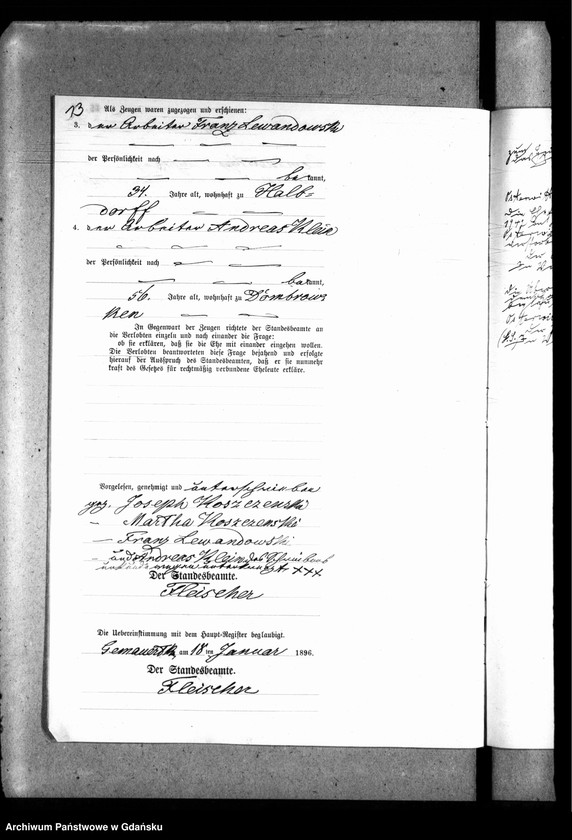 13
Als Zeugen waren zugezogen und erschienen:
3. der Arbeiter Franz Lewandowski
der Persönlichkeit nach
bekannt,
34. Jahre alt, wohnhaft zu Halb=
dorff
4. der Arbeiter Andreas Klein
der Persönlichkeit nach
bekannt,
56. Jahre alt, wohnhaft zu Dombrows
ken
In Gegenwart der Zeugen richtete der Standesbeamte an
die Verlobten einzeln und nach einander die Frage:
ob sie erklären, daß sie die Ehe mit einander eingehen wollen.
Die Verlobten beantworteten diese Frage bejahend und erfolgte
hierauf der Ausspruch des Standesbeamten, daß er sie nunmehr
kraft des Gesetzes für rechtmäßig verbundene Eheleute erkläre.
Vorgelesen, genehmigt und unterschrieben
gez. Joseph Koszczenski
Martha Koszczenski
Franz Lewandowski
und Andreas Klein des Schreibens
wegen unterkreuzt +++
Der Standesbeamte.
Fleischer
Die Uebereinstimmung mit dem Haupt-Register beglaubigt.
am 18 ten Januar 1896.
Der Standesbeamte.
Fleischer
Archiwum Państwowe w Gdańsku